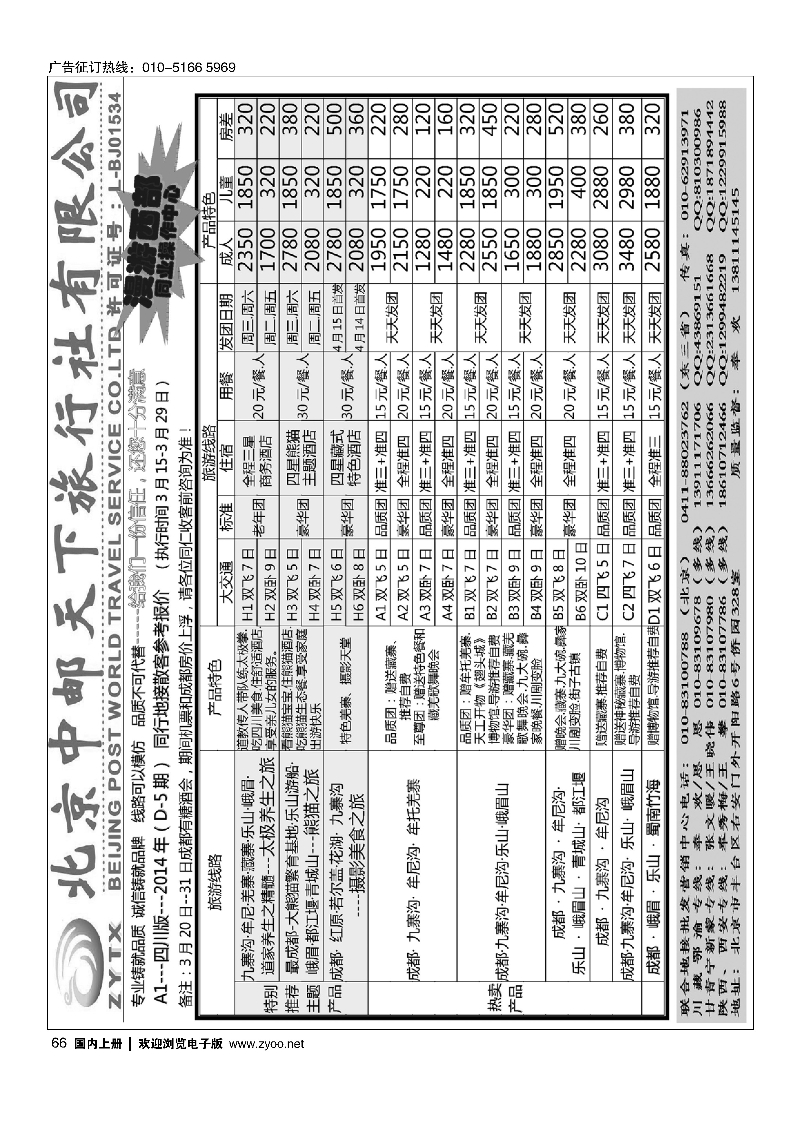 广告征订热线：010-5166 5969
北京中邮天下旅行社有限公司
ZYTX BEIJING POST WORLD TRAVEL SERVICE CO.LTD 许可证号：L-BJ01534
专业铸就品质 诚信铸就品牌 线路可以模仿 品质不可代替-----给我们一份信任，还您十分满意
漫游西部
同业操作中心
A1---四川版--2014年（D-5期） 同行地接散客参考报价 （执行时间3月15-3月29日）
备注：3月20日--31日成都有糖酒会，期间机票和成都房价上浮，请各位同仁收客前咨询为准！
旅游线路 产品特色
旅游线路 产品特色 大交通 标准 住宿 用餐 发团日期 成人 儿童 房差
特别推荐主题产品
九寨沟·牟尼·羌寨·藏寨·乐山·峨眉·
道家养生之精髓---太极养生之旅
道教传人带队练太极拳,
吃四川美食,住舒适酒店,
享受亲儿女的服务。
H1 双飞 7 日 老年团 全程三星 20 元/餐.人 周三.周六 2350 1850 320
H2 双卧 9 日 商务酒店 周二.周五 1700 320 220
最成都-大熊猫繁育基地·乐山游船·
峨眉·都江堰·青城山---熊猫之旅
看熊猫宝宝.住熊猫酒店,
吃熊猫生态餐.享受家庭
出游快乐
H3 双飞 5 日 豪华团 四星熊猫 30 元/餐.人 周三.周六 2780 1850 380
H4 双卧 7 日 主题酒店 周二.周五 2080 320 220
成都· 红原·若尔盖·花湖· 九寨沟
----摄影美食之旅
特色羌寨、摄影天堂
H5 双飞 6 日 豪华团 四星藏式 30 元/餐.人 4月15日首发 2780 1850 500
H6 双卧 8 日 特色酒店 4月14日首发 2080 320 360
热卖产品
成都· 九寨沟· 牟尼沟· 牟托羌寨
品质团：赠送藏寨、
推荐自费
至尊团：赠送特色餐和
藏羌歌舞晚会
A1 双飞 5 日 品质团 准三+准四 15 元/餐/人 天天发团 1950 1750 220
A2 双飞 5 日 豪华团 全程准四 20 元/餐.人 2150 1750 280
A3 双卧 7 日 品质团 准三+准四 15 元/餐/人 天天发团 1280 220 120
A4 双卧 7 日 豪华团 全程准四 20 元/餐.人 1480 220 160
成都·九寨沟·牟尼沟·乐山·峨眉山
品质团：赠牟托羌寨,
天工开物《翘头城》
博物馆.导游推荐自费
豪华团：赠藏寨.藏羌
歌舞晚会.九大碗.彝
家晚餐.川剧变脸
B1 双飞 7 日 品质团 准三+准四 15 元/餐/人 天天发团 2280 1850 320
B2 双飞 7 日 豪华团 全程准四 20 元/餐.人 2550 1850 450
B3 双卧 9 日 品质团 准三+准四 15 元/餐/人 天天发团 1650 300 220
B4 双卧 9 日 豪华团 全程准四 20 元/餐.人 1880 300 280
成都 · 九寨沟 · 牟尼沟·
乐山 · 峨眉山 · 青城山· 都江堰
赠晚会.藏寨.九大碗.彝家
川剧变脸.街子古镇
B5 双飞 8 日 豪华团 全程准四 20 元/餐.人 天天发团 2850 1950 520
B6 双卧 10 日 2280 400 380
成都 · 九寨沟 · 牟尼沟 赠送藏寨.推荐自费 C1 四飞 5 日 品质团 准三+准四 15 元/餐/人 天天发团 3080 2880 260
成都·九寨沟·牟尼沟· 乐山· 峨眉山
赠送神秘藏寨.博物馆,
导游推荐自费
C2 四飞 7 日 品质团 准三+准四 15 元/餐/人 天天发团 3480 2980 380
成都 · 峨眉 · 乐山 · 蜀南竹海 赠博物馆.导游推荐自费 D1 双飞 6 日 品质团 全程准三 15 元/餐/人 天天发团 2580 1880 320
联合地接批发营销中心电话：010-83100788（北京） 0411-88023762（东三省） 传真：010-62913971
川 藏 鄂 渝 专线：李 欢/恩 恩 010-83109678（多线）13911171706 QQ:43869151 QQ:810300986
甘青宁新蒙专线：张文暖/王晓伟 010-83107980（多线）13666262066 QQ:2313661668 QQ:1871894442
陕西、西安专线：李秀梅/王 攀 010-83107786（多线）18610712466 QQ:1299482219 QQ:1229915988
地址：北京市丰台区右安门外开阳路6号侨园328室 质量监督：李 欢 13811145145
66 国内上册 | 欢迎浏览电子版 www.zyoo.net